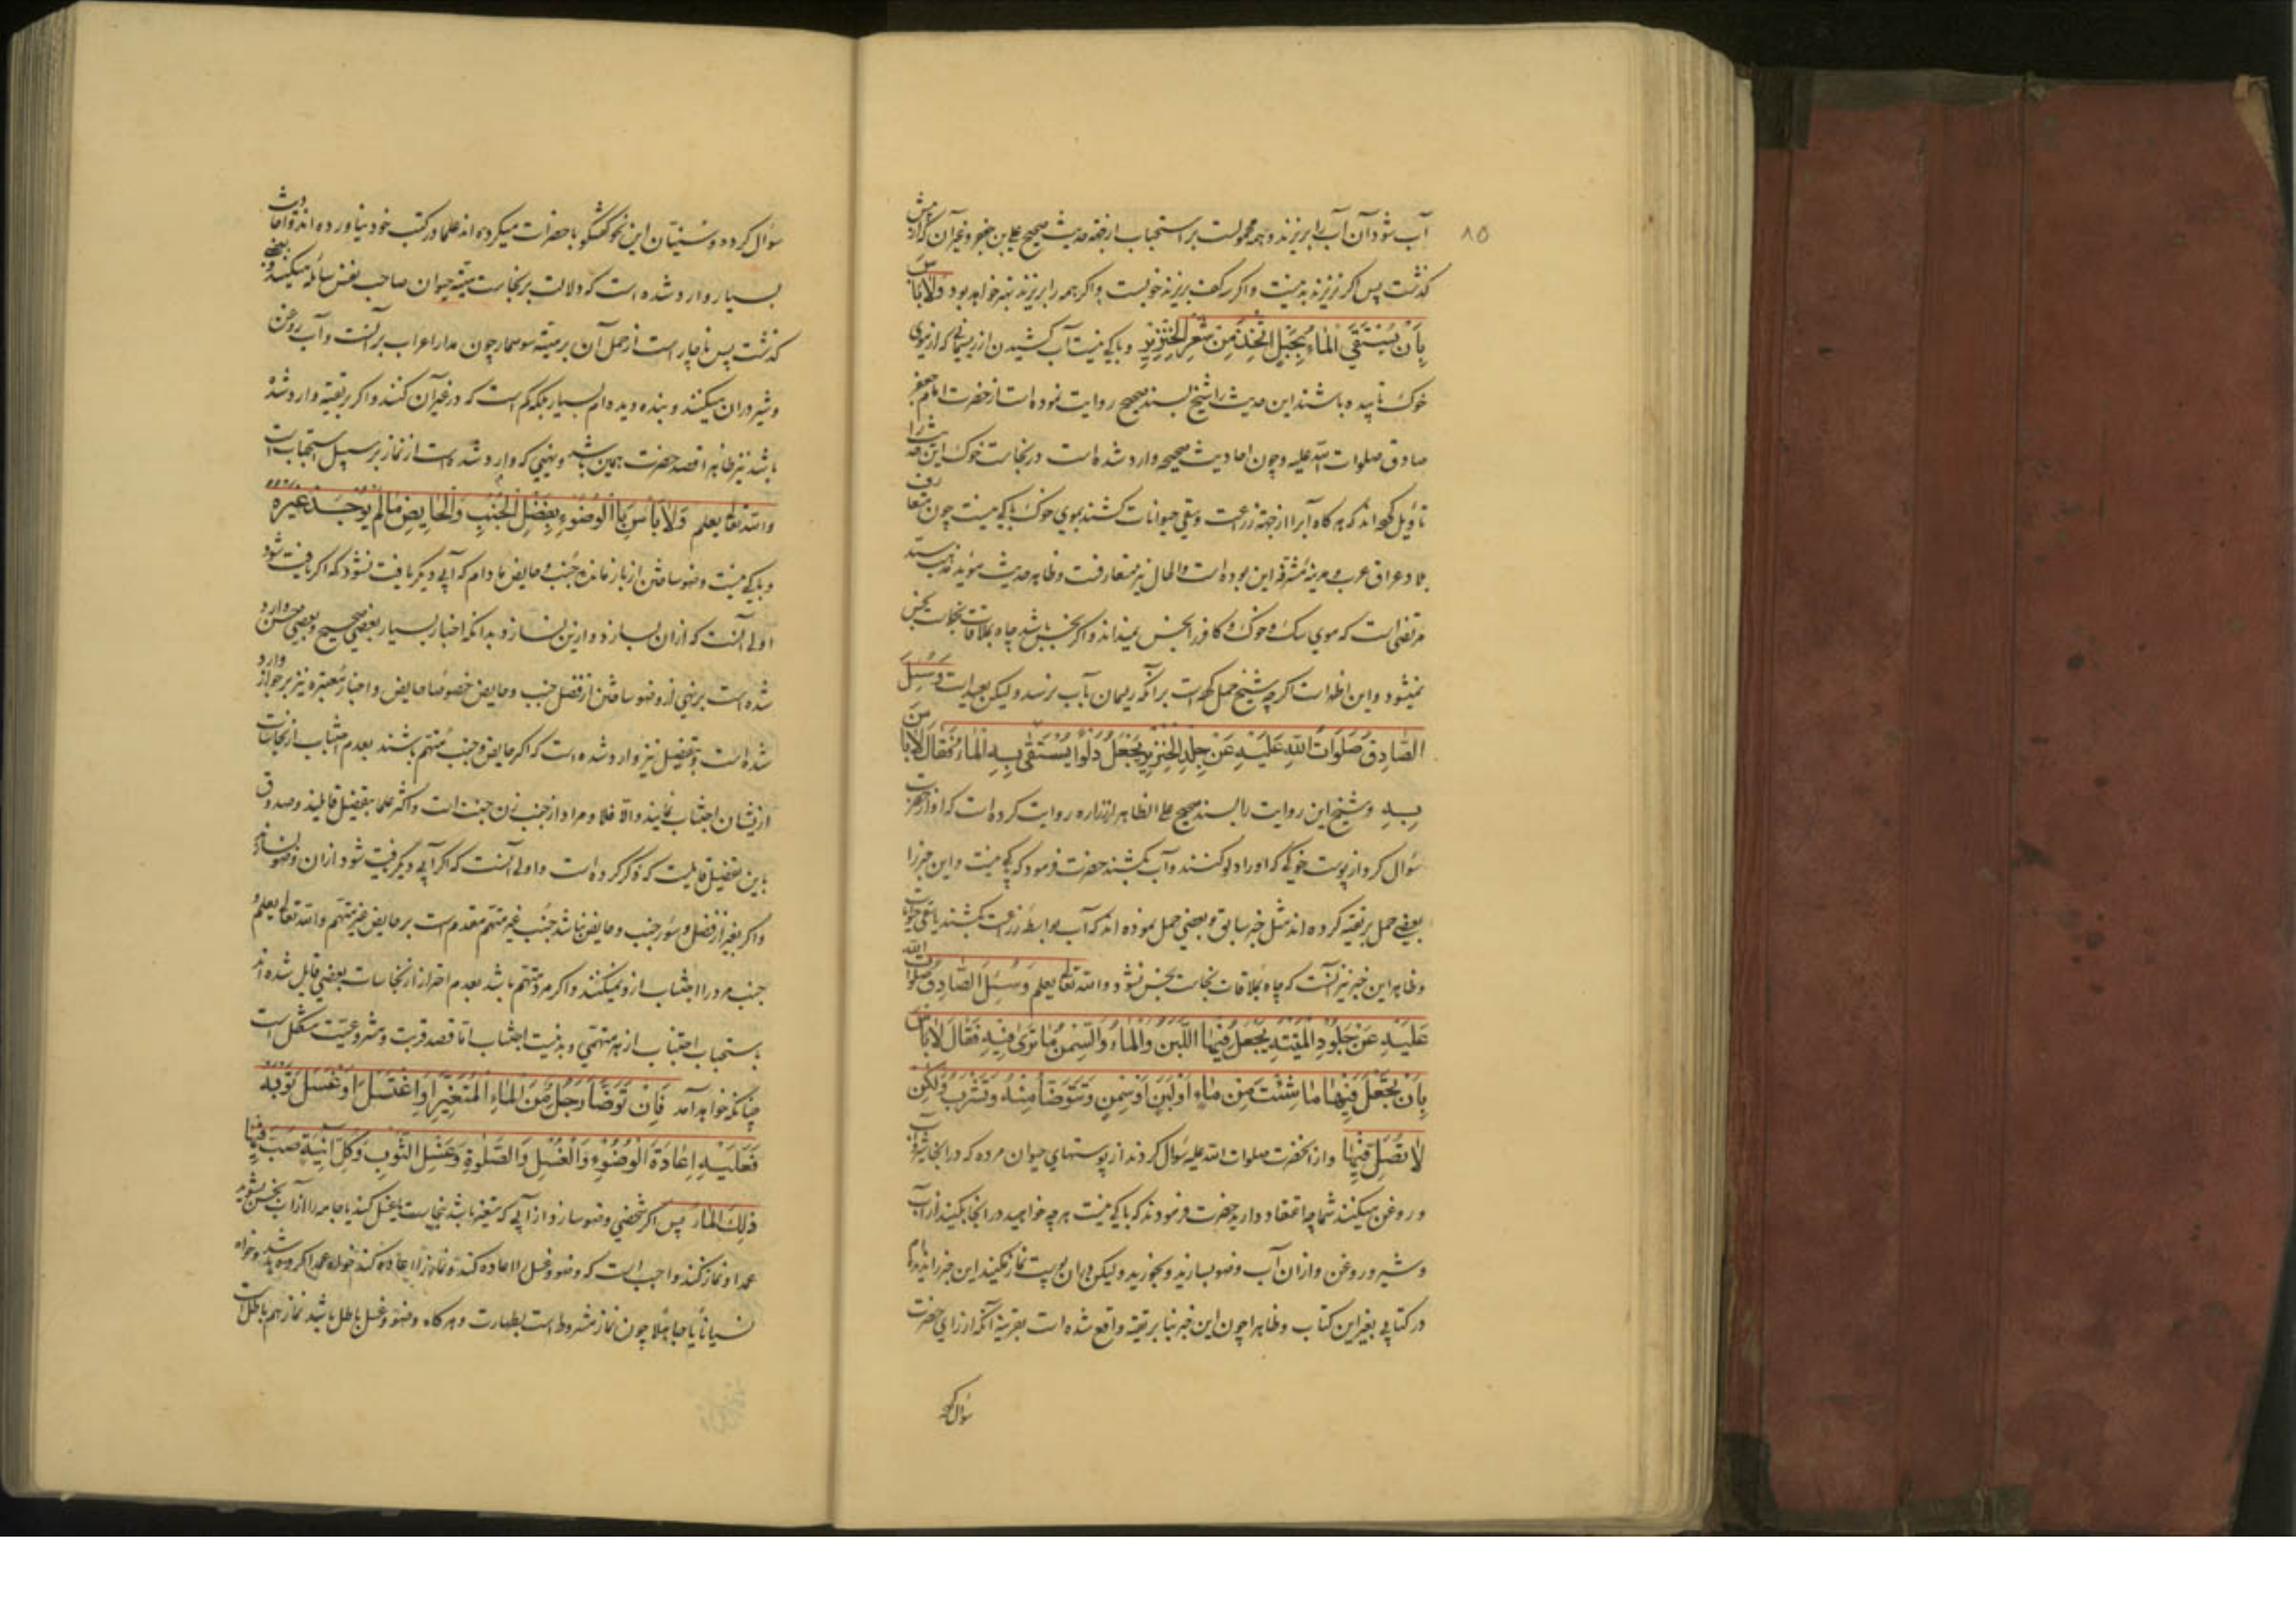 ۸۵
آب شود آن آب را بریزند و همه محمولست بر استحباب از جهة حدیث صحیح علی بن جعفر و غیر آن که از پیش
گذشت پس اگر نریزند بد نیست و اگر سه کف بریزند خوبست و اگر همه را بریزند بهتر خواهد بود وَلَا بَأْسَ
بِأَنْ يُسْتَقَى الْمَاءُ بِحَبْلٍ اتُّخِذَ مِنْ شَعْرِ الْخِنْزِيرِ و باکی نیست آب کشیدن از ریسمانی که از موی
خوک تابیده باشند این حدیث را شیخ بسند صحیح روایت نموده است از حضرت امام جعفر
صادق صلوات الله علیه و چون احادیث صحیحه وارد شده است در نجاست خوک این حدیث را
تاویل کرده اند که هر گاه آبرا از جهة زراعت و سقی حیوانات کشند بموی خوک باکی نیست چون متعارف
بلاد عراق عرب و مدینه مشرفه این بوده است و الحال نیز متعارفست و ظاهر حدیث مؤید مذهب سید
مرتضی است که موی سک و خوک و کافر را نجس نمیداند و اگر نجس باشد چاه بملاقات نجاست نجس
نمیشود و این اظهر است اگر چه شیخ حمل کرده است بر آنکه ریسمان بآب نرسد و لیکن بعید است وَسُئِلَ
الصَّادِقُ صَلَوَاتُ اللهِ عَلَيْهِ عَنْ جِلْدِ الْخِنْزِيرِ يُجْعَلُ دَلْوًا يُسْتَقَى بِهِ الْمَاءُ فَقَالَ لَا بَأْسَ
بِهِ و شیخ این روایت را بسند صحیح علی الظاهر از زراره روایت کرده است که او از حضرت
سؤال کرد از پوست خوکی که او را دلو کنند و آب کشند حضرت فرمود که باکی نیست و این خبر را
بعضی حمل بر تقیه کرده اند مثل خبر سابق و بعضی حمل نموده اند که آب بواسطه زراعت کشند یا سقی حیوانات
و ظاهر این خبر نیز آنست که چاه بملاقات نجاست نجس نشود و الله تعالی یعلم وَسُئِلَ الصَّادِقُ صَلَوَاتُ اللهِ
عَلَيْهِ عَنْ جُلُودِ الْمَيْتَةِ يُجْعَلُ فِيهَا اللَّبَنُ وَالْمَاءُ وَالسَّمْنُ مَا تَرَى فِيهِ فَقَالَ لَا بَأْسَ
بِأَنْ تَجْعَلَ فِيهَا مَا شِئْتَ مِنْ مَاءٍ أَوْ لَبَنٍ أَوْ سَمْنٍ وَتَتَوَضَّأَ مِنْهُ وَتَشْرَبَ وَلَكِنْ
لَا تُصَلِّ فِيهَا و از آنحضرت صلوات الله علیه سؤال کردند از پوستهای حیوان مرده که در آنجا شیر و آب
و روغن میکنند شما چه اعتقاد دارید حضرت فرمودند که باکی نیست هر چه خواهید در آنجا بکنید از آب
و شیر و روغن و از آن آب وضو بسازید و بخورید و لیکن در آن پوست نماز مکنید این خبر را ندیده ام
در کتابی بغیر این کتاب و ظاهرا چون این خبر بنا بر تقیه واقع شده است بقرینه آنکه از رای حضرت
سؤال کرده
سؤال کرده و سنیان این نحو گفتگو با حضرات میکرده اند علما در کتب خود نیاورده اند و احادیث
بسیار وارد شده است که دلالت بر نجاست میته حیوان صاحب نفس سائله میکند و بعضی
گذشت پس ناچار است از حمل آن بر میته سوسمار چون مدار اعراب بر آنست و آب روغن
و شیر در آن میکنند و بنده دیده ام بسیار بلکه کم است که در غیر آن کنند و اگر بر تقیه وارد شده
باشد نیز ظاهرا قصد حضرت همین باشد و نهیی که وارد شده است از نماز بر سبیل استحباب است
و الله تعالی یعلم وَلَا بَأْسَ بِالْوُضُوءِ بِفَضْلِ الْجُنُبِ وَالْحَائِضِ مَا لَمْ يُوجَدْ غَيْرُهُ
و باکی نیست وضو ساختن از باز مانده جنب و حایض مادام که آبی دیگر یافت نشود که اگر یافت شود
اولی آنست که از آن بسازد و از این نسازد و بدانکه اخبار بسیار بعضی صحیح و بعضی حسن وارد
شده است بر نهی از وضو ساختن از فضل جنب و حایض خصوصا حایض و اخبار معتبره نیز بر جواز وارد
شده است و تفصیل نیز وارد شده است که اگر حایض و جنب متهم باشند بعدم اجتناب از نجاسات
از ایشان اجتناب نمایند و الا فلا و مراد از جنب زن جنب است و اکثر علما بتفصیل قایلند و صدوق
باین تفضیل قایلست که ذکر کرده است و اولی آنست که اگر آبی دیگر یافت شود از آن وضو نسازند
و اگر بغیر از فضل و سؤر جنب و حایض نباشد جنب غیر متهم مقدم است بر حایض غیر متهم و الله تعالی یعلم و
جنب مرد را اجتناب از و نمیکنند و اگر مرد متهم باشد بعدم احتراز از نجاسات بعضی قایل شده اند
باستحباب اجتناب از هر متهمی و بد نیست اجتناب اما قصد قربت و مشروعیت مشکل است
چنانکه خواهد آمد فَإِنْ تَوَضَّأَ رَجُلٌ مِنَ الْمَاءِ الْمُتَغَيِّرِ أَوِ اغْتَسَلَ أَوْ غَسَلَ ثَوْبَهُ
فَعَلَيْهِ إِعَادَةُ الْوُضُوءِ وَالْغُسْلِ وَالصَّلٰوةِ وَغَسْلُ الثَّوْبِ وَكُلِّ آنِيَةٍ صُبَّ فِيهَا
ذَلِكَ الْمَاءُ پس اگر شخصی وضو سازد از آبی که متغیر باشد بنجاست یا غسل کند یا جامه را از آب نجس بشوید
عمدا و نماز کند واجب است که وضو و غسل را اعاده کند و نماز را اعاده کند خواه عمدا کرده باشد و خواه
نسیانا یا جاهلا چون نماز مشروط است بطهارت و هر گاه وضو و غسل باطل باشد نماز هم باطل است